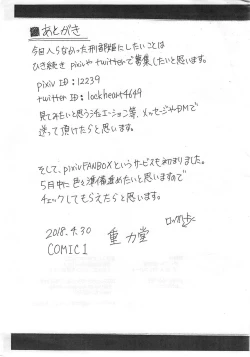 ■あとがき
今日入らなかった刑部姫にしたいことは
ひき続き pixivや twitterで募集したいと思います。
pixiv ID : 12239
twitter ID : lockheart4649
見てみたいと思うシチュエーション等、メッセージやDMで
送って頂けたらと思います。
そして、pixivFANBOXというサービスも初まりました。
5月中に色々準備進めたいと思いますので
チェックしてもらえたらと思います。
2018.4.30
COMIC1
重力堂